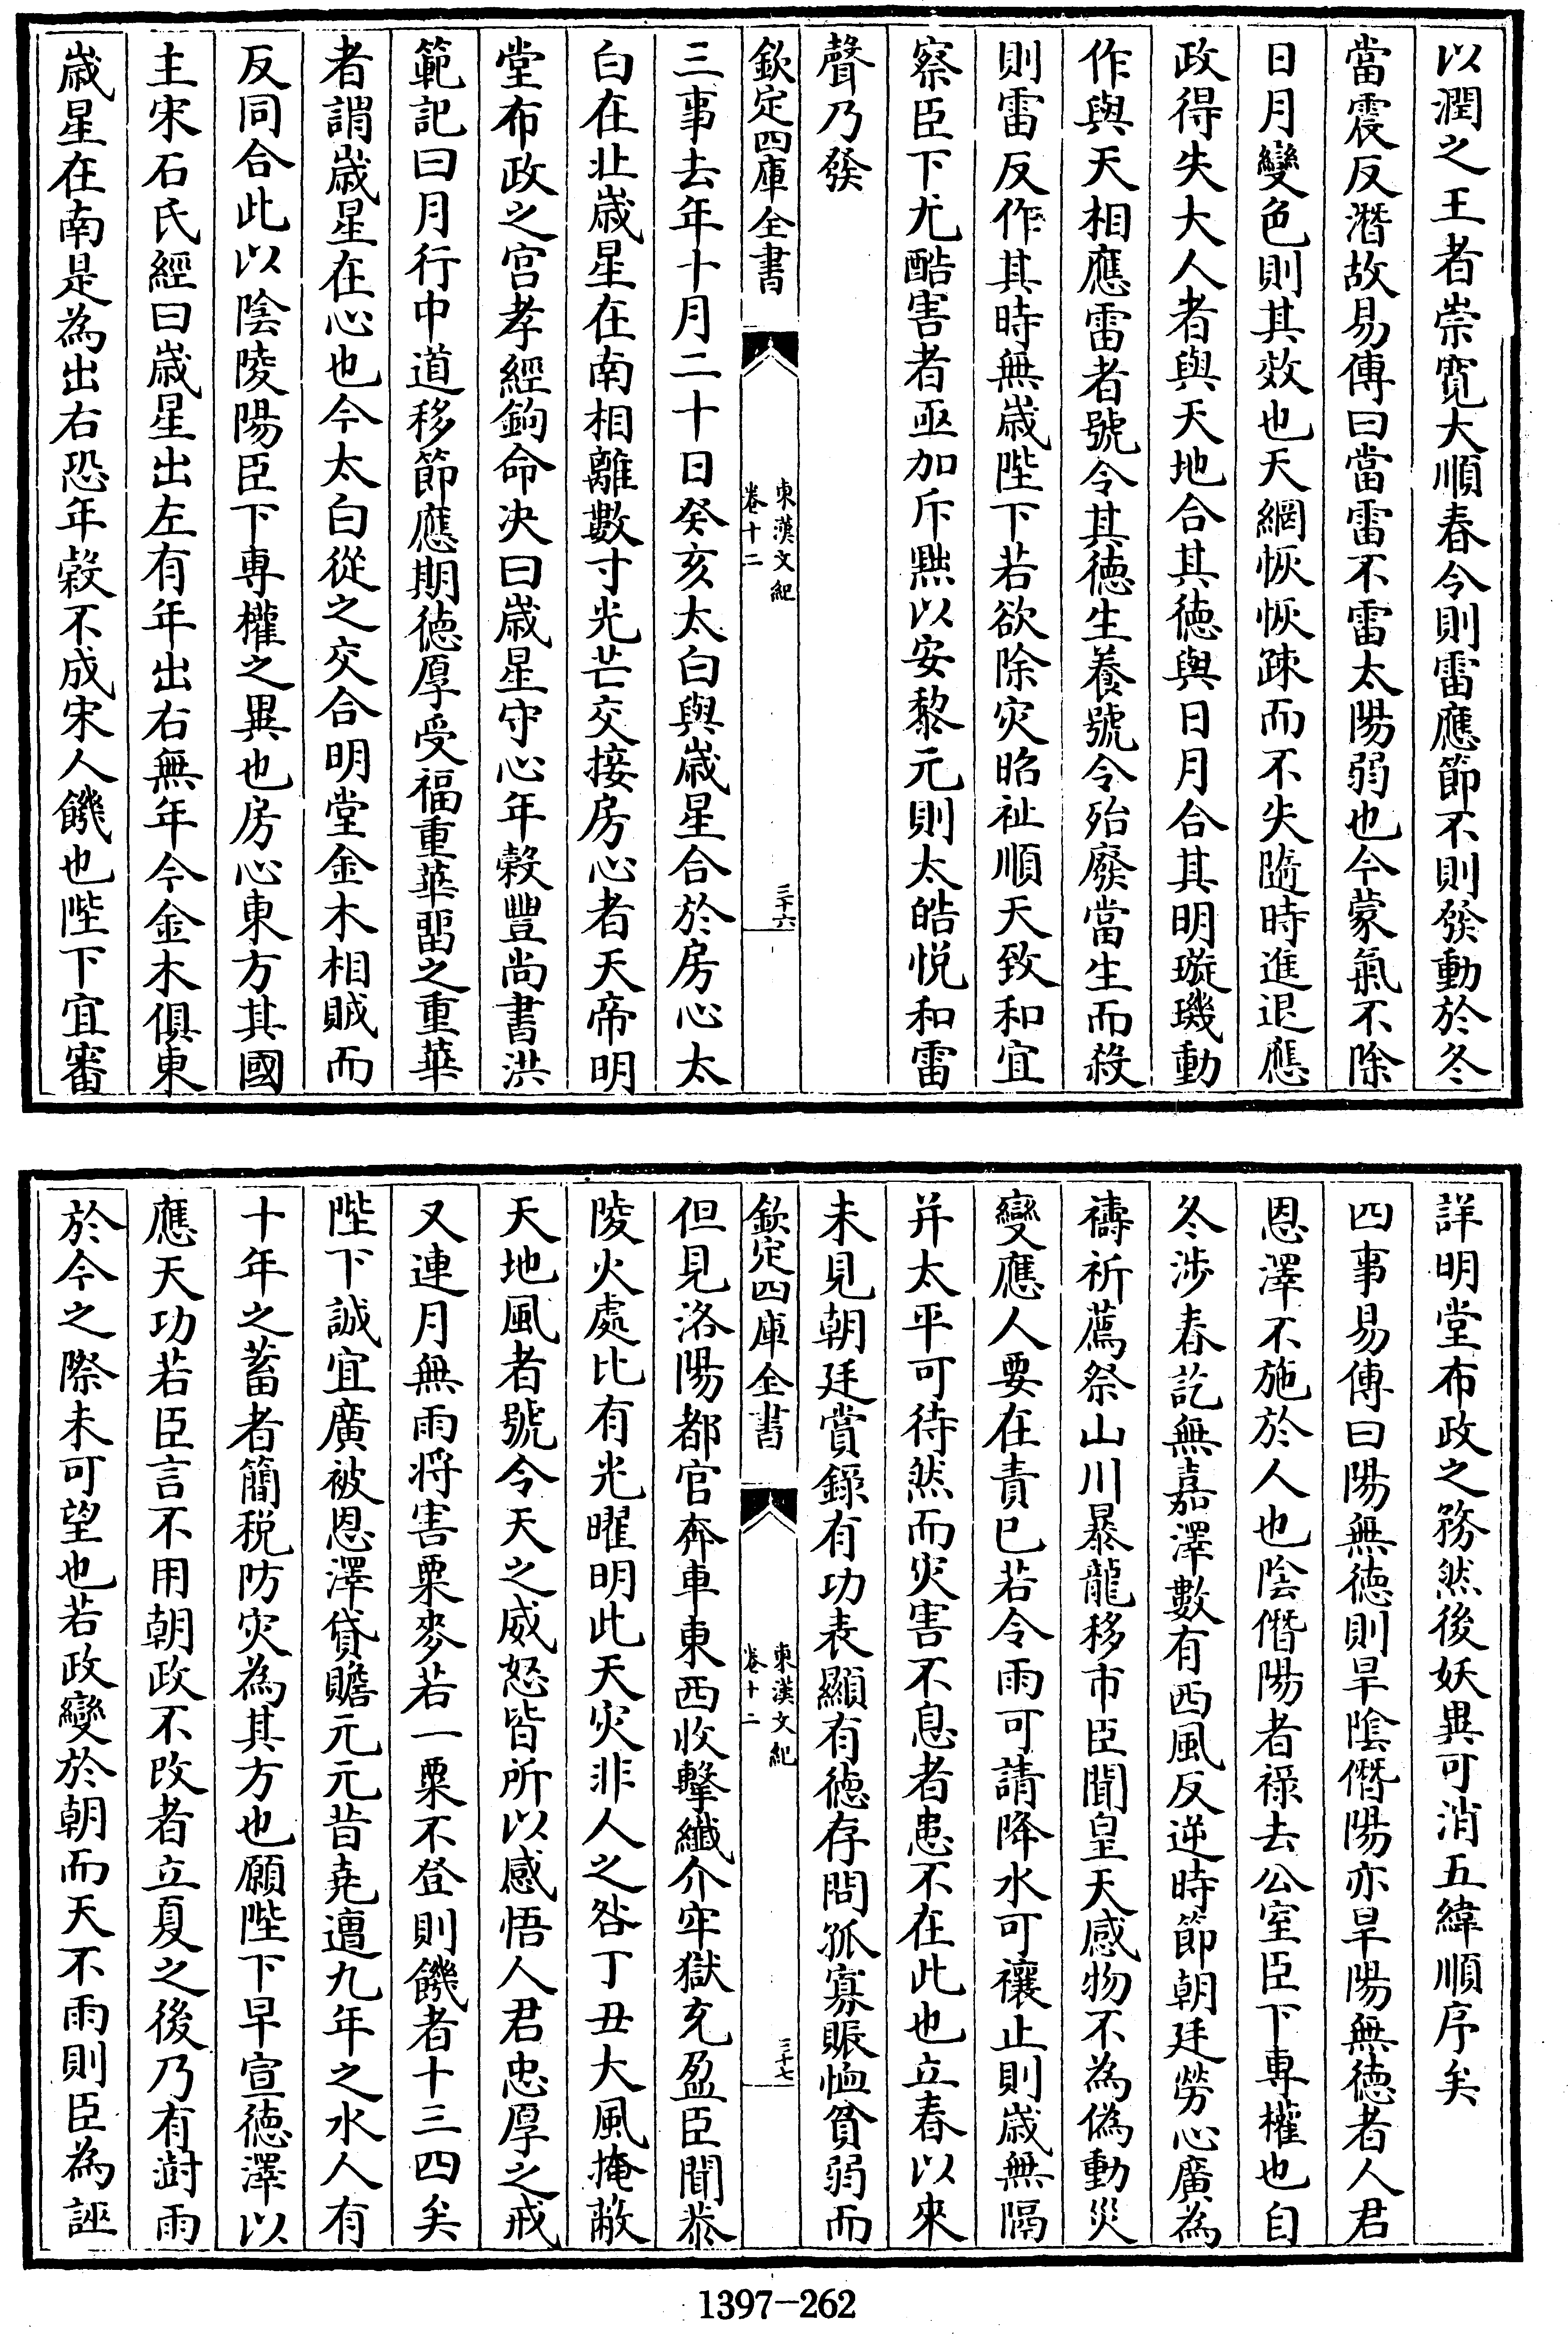 以潤之王者崇寛大順春令則雷應節不則發動於冬
當震反潛故易傳曰當雷不雷太陽弱也今蒙氣不除
日月變色則其效也天網恢恢疎而不失隨時進退應
政得失大人者與天地合其德與日月合其明璇璣動
作與天相應雷者號令其德生養號令殆廢當生而殺
則雷反作其時無歲陛下若欲除災昭祉順天致和宜
察臣下尤酷害者亟加斥黜以安黎元則太皓悅和雷
聲乃發
欽定四庫全書
東漢文紀
卷十二
三十六
三事去年十月二十日癸亥太白與歲星合於房心太
白在北歲星在南相離數寸光芒交接房心者天帝明
堂布政之宫孝經鉤命决曰歲星守心年穀豐尚書洪
範記曰月行中道移節應期德厚受福重華留之重華
者謂歲星在心也今太白從之交合明堂金木相賊而
反同合此以陰陵陽臣下專權之異也房心東方其國
主宋石氏經曰歲星出左有年出右無年今金木俱東
歲星在南是為出右恐年穀不成宋人饑也陛下宜審
詳明堂布政之務然後妖異可消五緯順序矣
四事易傳曰陽無德則旱陰僭陽亦旱陽無德者人君
恩澤不施於人也陰僭陽者祿去公室臣下專權也自
冬涉春訖無嘉澤數有西風反逆時節朝廷勞心廣為
禱祈薦祭山川暴龍移市臣聞皇天感物不為偽動災
變應人要在責已若令雨可請降水可禳止則歲無隔
并太平可待然而災害不息者患不在此也立春以來
未見朝廷賞錄有功表顯有德存問孤寡賑恤貧弱而
欽定四庫全書
東漢文紀
卷十二
三十七
但見洛陽都官奔車東西收擊纖介牢獄充盈臣聞恭
陵火處比有光曜明此天災非人之咎丁丑大風掩蔽
天地風者號令天之威怒皆所以感悟人君忠厚之戒
又連月無雨將害粟麥若一粟不登則饑者十三四矣
陛下誠宜廣被恩澤貸贍元元昔堯遭九年之水人有
十年之蓄者簡稅防災為其方也願陛下早宣德澤以
應天功若臣言不用朝政不改者立夏之後乃有澍雨
於今之際未可望也若政變於朝而天不雨則臣為誣
1397-262